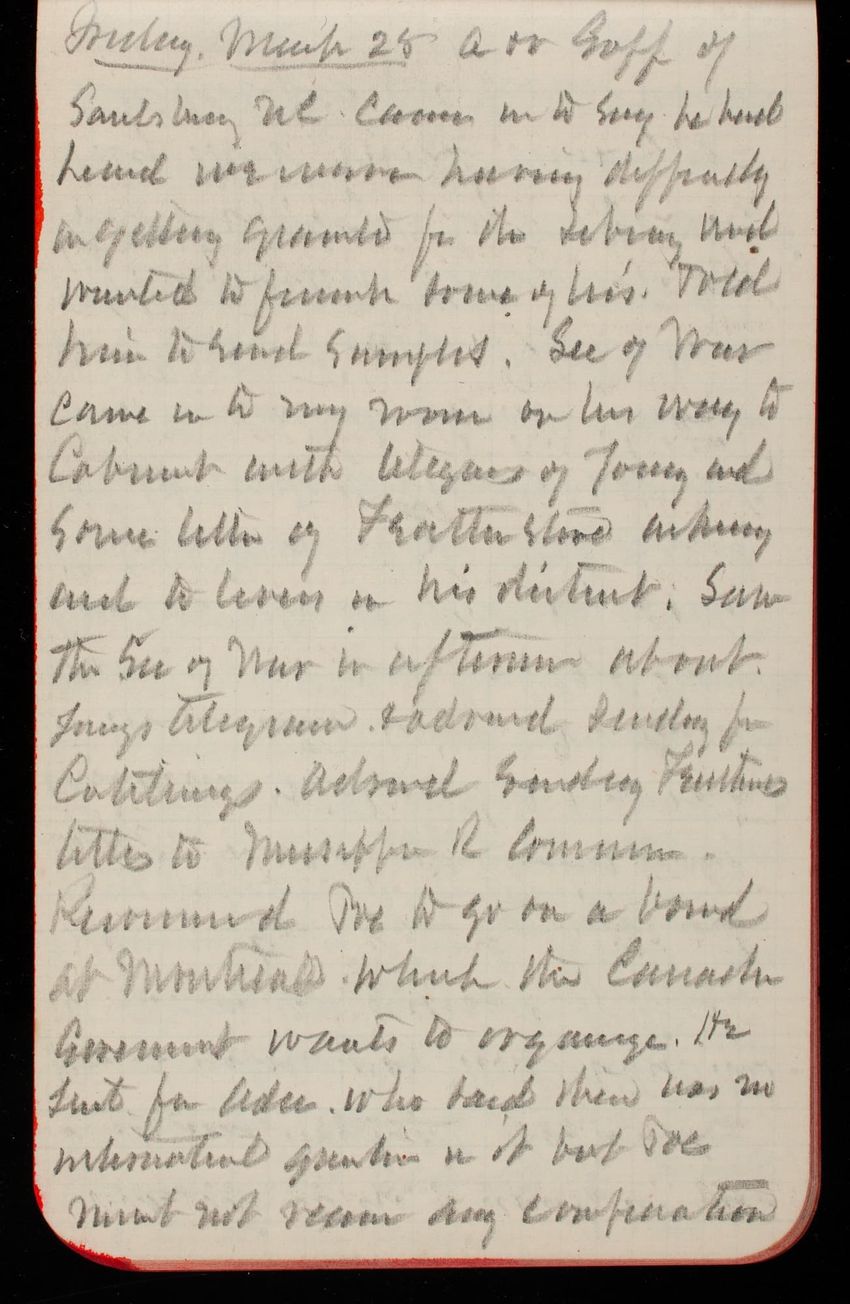 Friday, March 25 A W Goff of
Saulsbury NC. came in to say he had
heard we were having difficulty
in getting granite for the Library and
wanted to furnish some of his. Told
him to send samples. Sec of War
came in to my room on his way to
Cabinet with telegrams of Young and
some letter of Featherstone asking
aid to levees in his district. Saw
the Sec of War in afternoon about
Youngs telegram & advised sending for
Advised sending
letter to Mississippi R Commn.
Recommend Poe to go on a board
at Montreal which the Canadn
Goverment wants to organize. He
sent for Adee who said there was no
international question in it but Poe
must not receive any compensation